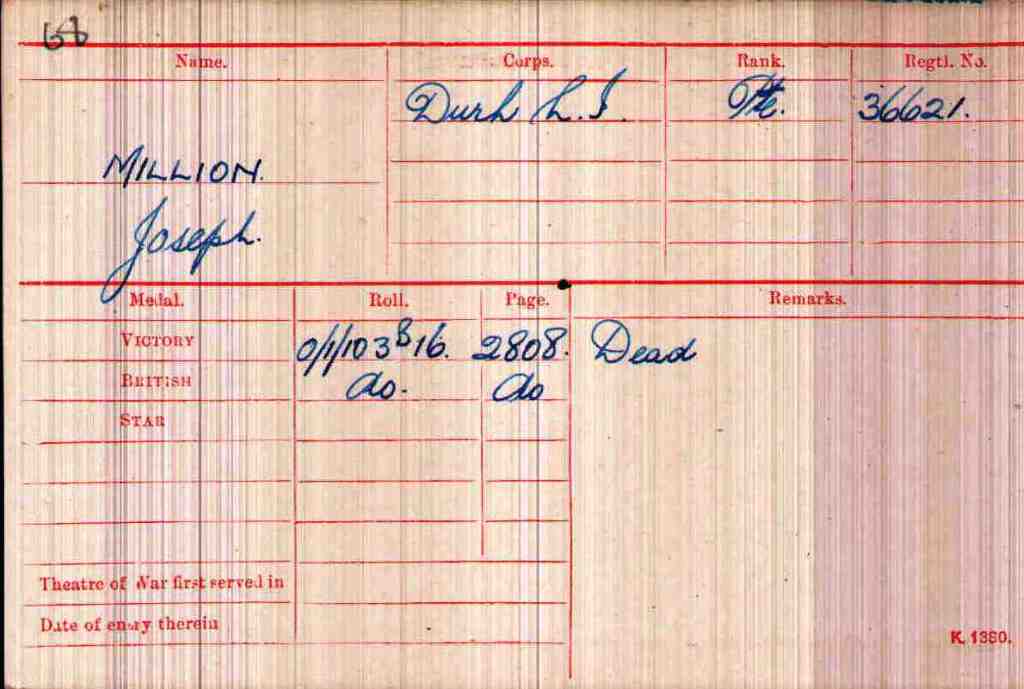 Name. Corps. Rank. Regtl. No.
Durh L.I. Pte. 36621.
MILLION.
Joseph.
Medal. Roll. Page. Remarks.
VICTORY 0/1/103 B 16. 2808. Dead
BRITISH do. do
STAR
Theatre of War first served in
Date of entry therein
K. 1380.